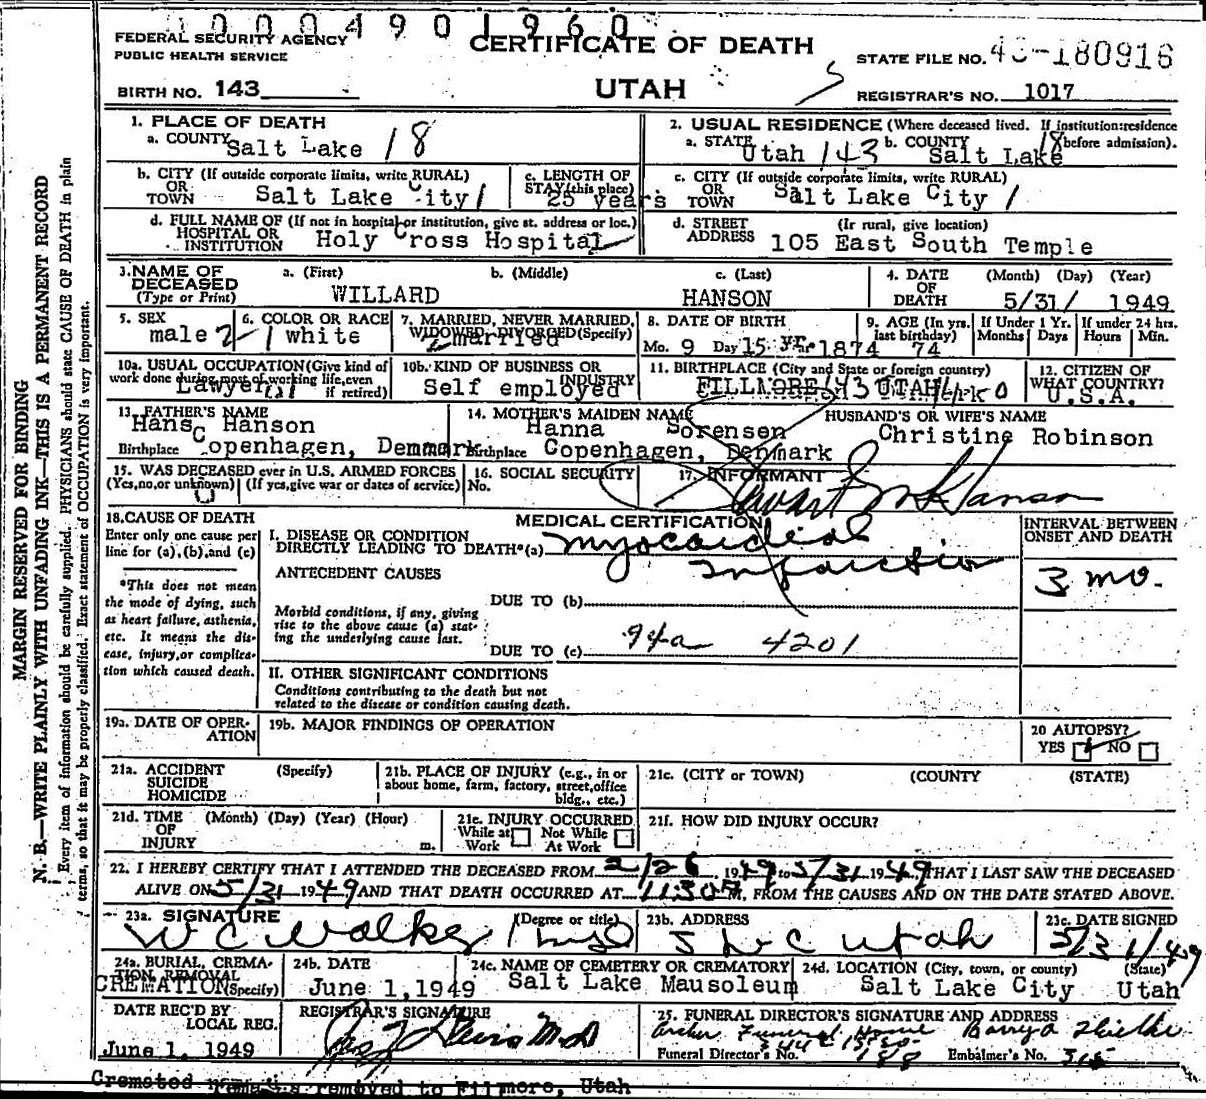 10004901960
FEDERAL SECURITY AGENCY
PUBLIC HEALTH SERVICE
CERTIFICATE OF DEATH
STATE FILE NO. 180916
BIRTH NO. 143
UTAH
REGISTRAR'S NO. 1017
1. PLACE OF DEATH
a. COUNTY Salt Lake 18
2. USUAL RESIDENCE (Where deceased lived. If institution:residence before admission).
a. STATE Utah 143 b. COUNTY Salt Lake 18
b. CITY (If outside corporate limits, write RURAL)
OR
TOWN Salt Lake City 1
c. LENGTH OF
STAY (this place)
25 years
c. CITY (If outside corporate limits, write RURAL)
OR
TOWN Salt Lake City 1
d. FULL NAME OF (If not in hospital or institution, give st. address or loc.)
HOSPITAL OR
INSTITUTION Holy Cross Hospital
d. STREET (If rural, give location)
ADDRESS 105 East South Temple
3. NAME OF
DECEASED
(Type or Print)
a. (First) b. (Middle) c. (Last)
WILLARD HANSON
4. DATE
OF
DEATH
(Month) (Day) (Year)
5/31/ 1949
5. SEX
male 2
6. COLOR OR RACE
1 white
7. MARRIED, NEVER MARRIED,
WIDOWED, DIVORCED (Specify)
2 married
8. DATE OF BIRTH
Mo. 9 Day 15 yr. 1874
9. AGE (In yrs.
last birthday)
74
If Under 1 Yr.
Months Days
If under 24 hrs.
Hours Min.
10a. USUAL OCCUPATION (Give kind of
work done during most of working life, even
if retired)
Lawyer
10b. KIND OF BUSINESS OR
INDUSTRY
Self employed
11. BIRTHPLACE (City and State or foreign country)
FILLMORE 143 UTAH
12. CITIZEN OF
WHAT COUNTRY?
U.S.A.
13. FATHER'S NAME
Hans C Hanson
Birthplace Copenhagen, Denmark
14. MOTHER'S MAIDEN NAME
Hanna Sorensen
Birthplace Copenhagen, Denmark
HUSBAND'S OR WIFE'S NAME
Christine Robinson
15. WAS DECEASED ever in U.S. ARMED FORCES
(Yes, no, or unknown) (If yes, give war or dates of service)
16. SOCIAL SECURITY
No.
17. INFORMANT
Hanson
18. CAUSE OF DEATH
Enter only one cause per
line for (a), (b), and (c)
*This does not mean
the mode of dying, such
as heart failure, asthenia,
etc. It means the dis-
ease, injury, or complica-
tion which caused death.
MEDICAL CERTIFICATION
I. DISEASE OR CONDITION
DIRECTLY LEADING TO DEATH*(a) myocardial
infarction
INTERVAL BETWEEN
ONSET AND DEATH
3 mo.
ANTECEDENT CAUSES
DUE TO (b)
Morbid conditions, if any, giving
rise to the above cause (a) stat-
ing the underlying cause last.
DUE TO (c) 94a 4201
II. OTHER SIGNIFICANT CONDITIONS
Conditions contributing to the death but not
related to the disease or condition causing death.
19a. DATE OF OPER-
ATION
19b. MAJOR FINDINGS OF OPERATION
20 AUTOPSY?
YES NO
21a. ACCIDENT (Specify)
SUICIDE
HOMICIDE
21b. PLACE OF INJURY (e.g., in or
about home, farm, factory, street, office
bldg., etc.)
21c. (CITY or TOWN) (COUNTY) (STATE)
21d. TIME (Month) (Day) (Year) (Hour)
OF
INJURY m.
21e. INJURY OCCURRED
While at Work Not While At Work
21f. HOW DID INJURY OCCUR?
22. I HEREBY CERTIFY THAT I ATTENDED THE DECEASED FROM 2/26 1949 to 5/31 1949 THAT I LAST SAW THE DECEASED
ALIVE ON 5/31 1949 AND THAT DEATH OCCURRED AT 11:30 P M, FROM THE CAUSES AND ON THE DATE STATED ABOVE.
23a. SIGNATURE (Degree or title)
W C Walker MD
23b. ADDRESS
S L C Utah
23c. DATE SIGNED
5/31/49
24a. BURIAL, CREMA-
TION, REMOVAL
(Specify)
CREMATION
24b. DATE
June 1, 1949
24c. NAME OF CEMETERY OR CREMATORY
Salt Lake Mausoleum
24d. LOCATION (City, town, or county) (State)
Salt Lake City Utah
DATE REC'D BY
LOCAL REG.
June 1, 1949
REGISTRAR'S SIGNATURE
M.D.
25. FUNERAL DIRECTOR'S SIGNATURE AND ADDRESS
Funeral Home
Funeral Director's No. Embalmer's No. 315
Cremated remains removed to Fillmore, Utah
MARGIN RESERVED FOR BINDING
N. B.—WRITE PLAINLY WITH UNFADING INK—THIS IS A PERMANENT RECORD
Every item of information should be carefully supplied. PHYSICIANS should state CAUSE OF DEATH in plain
terms, so that it may be properly classified. Exact statement of OCCUPATION is very important.